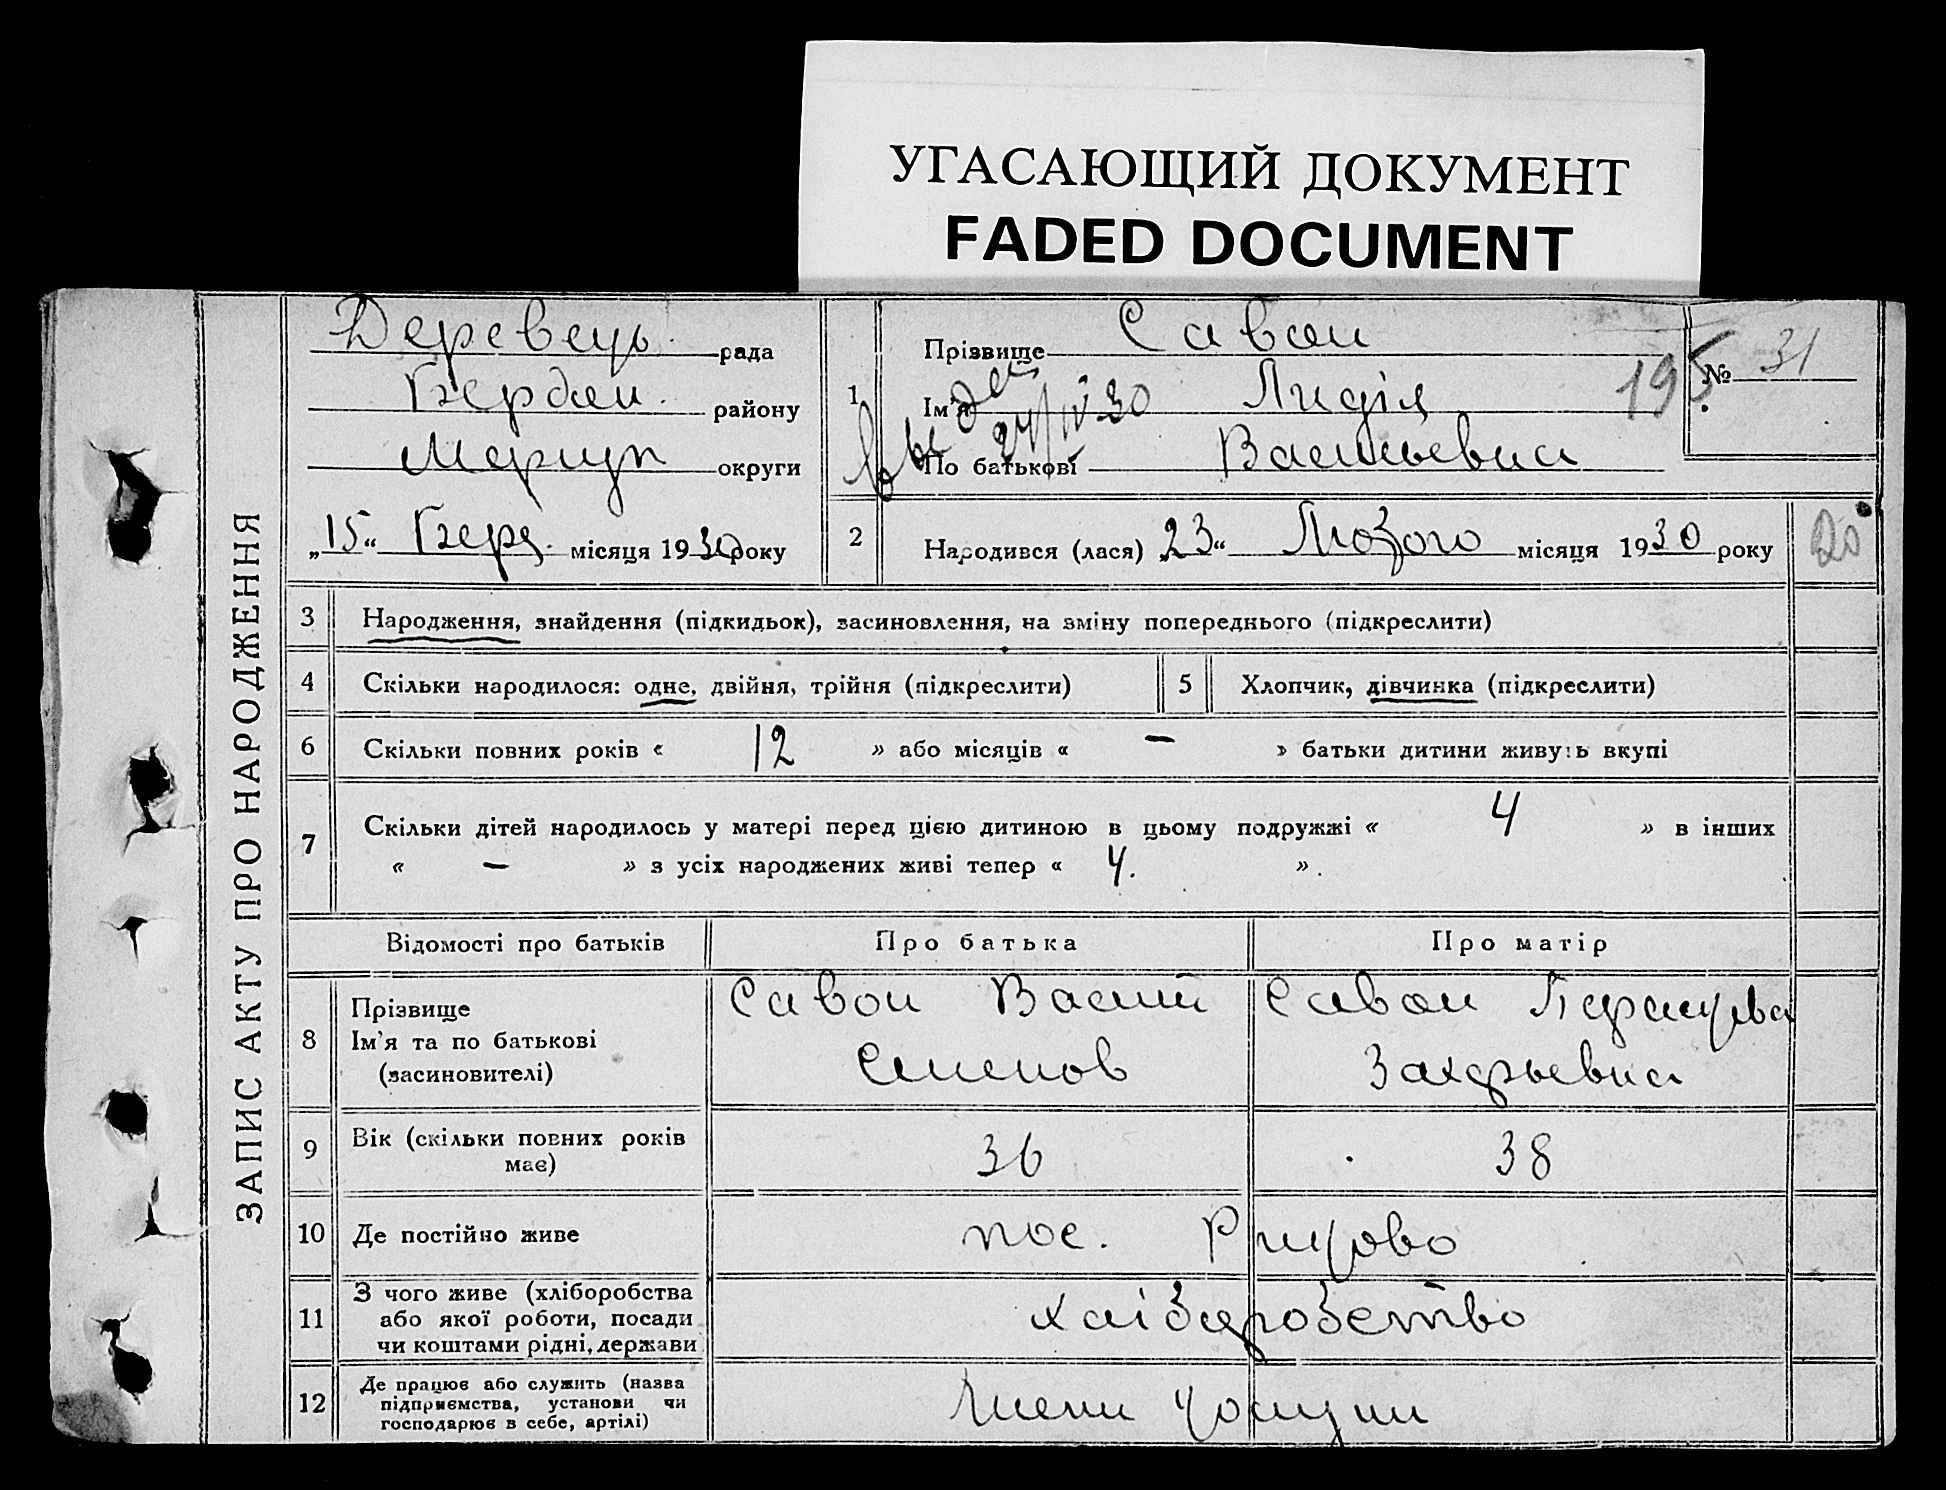 УГАСАЮЩИЙ ДОКУМЕНТ
FADED DOCUMENT
ЗАПИС АКТУ ПРО НАРОДЖЕННЯ
Деревець. рада
Бердян. району
Маріуп округи
„15“ Берез. місяця 1930 року
1
Прізвище Савон
Ім'я Лидія
По батькові Васильевна
24/IV 30
195
№ 31
2
Народився (лася) 23 “ Лютого місяця 1930 року
20
3 Народження, знайдення (підкидьок), засиновлення, на зміну попереднього (підкреслити)
4 Скільки народилося: одне, двійня, трійня (підкреслити)
5 Хлопчик, дівчинка (підкреслити)
6 Скільки повних років « 12 » або місяців « – » батьки дитини живуть вкупі
7 Скільки дітей народилось у матері перед цією дитиною в цьому подружжі « 4 » в інших
« – » з усіх народжених живі тепер « 4. » .
Відомості про батьків Про батька Про матір
8 Прізвище
Ім'я та по батькові
(засиновителі)
Савон Василий
Семенов
Савон
Захарьевна
9 Вік (скільки повних років
має)
36 38
10 Де постійно живе пос.
11 З чого живе (хліборобства
або якої роботи, посади
чи коштами рідні, держави
хліборобство
12 Де працює або служить (назва
підприємства, установи чи
господарює в себе, артілі)